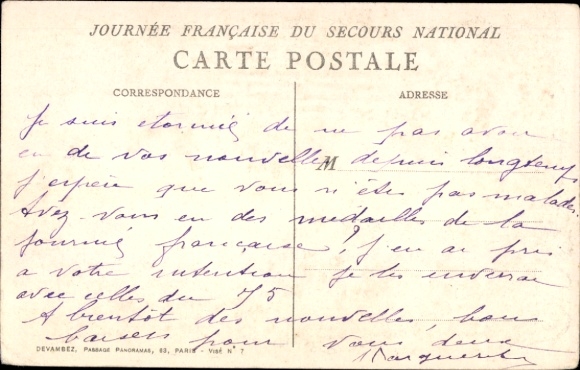 JOURNÉE FRANÇAISE DU SECOURS NATIONAL
CARTE POSTALE
CORRESPONDANCE
ADRESSE
Je suis etonnée de ne pas avoir
eu de vos nouvelles depuis longtemps
M
j'espère que vous n'êtes pas malades.
Avez-vous eu des médailles de la
journée française? j'en ai pris
a votre intention je les enverrai
avec celles du 75
A bientôt des nouvelles, bons
baisers pour vous deux
Marguerite
DEVAMBEZ, PASSAGE PANORAMAS, 63, PARIS - VISÉ N° 7